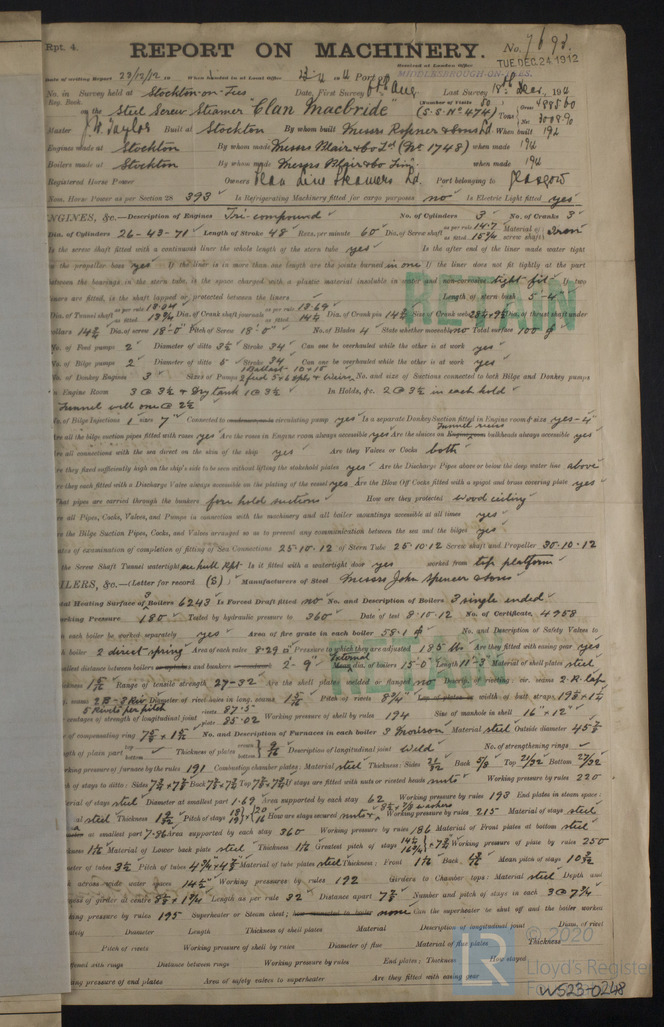 Rpt. 4.
REPORT ON MACHINERY.
No. 7693.
Received at London Office
TUE DEC 24 1912
Date of writing Report 23/12/12 19 When handed in at Local Office 19 Port of MIDDLESBROUGH-ON-TEES.
No. in Survey held at Stockton-on-Tees Date, First Survey Aug Last Survey 18th Dec 191
Reg. Book. (Number of Visits 50)
on the Steel Screw Steamer "Clan Macbride" (S.S. No. 474) Tons Gross Net
Master J. W. Taylor Built at Stockton By whom built Messrs Ropner & Sons Ld. When built 1912
Engines made at Stockton By whom made Messrs Blair & Co Ld (No. 1748) when made 1912
Boilers made at Stockton By whom made Messrs Blair & Co Lim. when made 1912
Registered Horse Power Owners Clan Line Steamers Ld. Port belonging to Glasgow
Nom. Horse Power as per Section 28 393 Is Refrigerating Machinery fitted for cargo purposes no Is Electric Light fitted yes
ENGINES, &c.—Description of Engines Tri-compound No. of Cylinders 3 No. of Cranks 3
Dia. of Cylinders 26-43-71 Length of Stroke 48 Revs. per minute 60 Dia. of Screw shaft as per rule 14.7 as fitted 15 3/4 Material of screw shaft iron
Is the screw shaft fitted with a continuous liner the whole length of the stern tube yes Is the after end of the liner made water tight
in the propeller boss yes If the liner is in more than one length are the joints burned in one If the liner does not fit tightly at the part
between the bearings in the stern tube, is the space charged with a plastic material insoluble in water and non-corrosive tight fit If two
liners are fitted, is the shaft lapped or protected between the liners Length of stern bush 5-4
RETAIN
Dia. of Tunnel shaft as per rule as fitted 13 3/4 Dia. of Crank shaft journals as per rule 13.69 as fitted 14 1/4 Dia. of Crank pin Size of Crank webs Dia. of thrust shaft under
collars 14 1/4 Dia. of screw 18-0 Pitch of Screw 18-0 No. of Blades 4 State whether moveable no Total surface 100
No. of Feed pumps 2 Diameter of ditto 3 1/2 Stroke 34 Can one be overhauled while the other is at work yes
No. of Bilge pumps 2 Diameter of ditto 5 Stroke 34 Can one be overhauled while the other is at work yes
No. of Donkey Engines 3 Sizes of Pumps No. and size of Suctions connected to both Bilge and Donkey pumps
In Engine Room 3 @ 3 1/2 & Dry tank 1 @ 3 1/2 In Holds, &c. 2 @ 3 1/2 in each hold
Tunnel well one @ 2 1/2
No. of Bilge Injections 1 sizes 7" Connected to circulating pump yes Is a separate Donkey Suction fitted in Engine room & size yes-4
Are all the bilge suction pipes fitted with roses yes Are the roses in Engine room always accessible yes Are the sluices on bulkheads always accessible yes
Are all connections with the sea direct on the skin of the ship yes Are they Valves or Cocks both
Are they fixed sufficiently high on the ship's side to be seen without lifting the stokehold plates yes Are the Discharge Pipes above or below the deep water line above
Are they each fitted with a Discharge Valve always accessible on the plating of the vessel yes Are the Blow Off Cocks fitted with a spigot and brass covering plate yes
What pipes are carried through the bunkers fore hold suctions How are they protected wood ceiling
Are all Pipes, Cocks, Valves, and Pumps in connection with the machinery and all boiler mountings accessible at all times yes
Are the Bilge Suction Pipes, Cocks, and Valves arranged so as to prevent any communication between the sea and the bilges yes
Dates of examination of completion of fitting of Sea Connections 25-10-12 of Stern Tube 25-10-12 Screw shaft and Propeller 30-10-12
Is the Screw Shaft Tunnel watertight see hull Rpt Is it fitted with a watertight door yes worked from top platform
BOILERS, &c.—(Letter for record (S)) Manufacturers of Steel Messrs John Spencer & Sons
Total Heating Surface of 3 Boilers 6243 Is Forced Draft fitted no No. and Description of Boilers 3 single ended
Working Pressure 180 Tested by hydraulic pressure to 360 Date of test 8-10-12 No. of Certificate 4958
Can each boiler be worked separately yes Area of fire grate in each boiler 58.1 No. and Description of Safety Valves to
each boiler 2 direct spring Area of each valve 8.29 Pressure to which they are adjusted 185 lbs Are they fitted with easing gear yes
Smallest distance between boilers and bunkers 2-9" dia. of boilers 15-0 Length 11-3 Material of shell plates steel
RETAIN
Thickness 1 5/16 Range of tensile strength 29-32 Are the shell plates welded or flanged no Descrip. of riveting: cir. seams 2 R. lap
long. seams Diameter of rivet holes in long. seams 1 5/16 Pitch of rivets 8 3/4 width of butt straps
Percentages of strength of longitudinal joint rivets 87.5 plate 85.02 Working pressure of shell by rules 194 Size of manhole in shell 16" × 12"
Size of compensating ring No. and Description of Furnaces in each boiler 3 Morison Material steel Outside diameter 45 1/2
Length of plain part Thickness of plates Description of longitudinal joint Weld No. of strengthening rings
Working pressure of furnace by the rules 191 Combustion chamber plates: Material steel Thickness: Sides 21/32 Back 5/8 Top 21/32 Bottom 27/32
Pitch of stays to ditto: Sides Back Top If stays are fitted with nuts or riveted heads nuts Working pressure by rules 220
Material of stays steel Diameter at smallest part 1.69 Area supported by each stay 62 Working pressure by rules 193 End plates in steam space:
Material steel Thickness Pitch of stays How are stays secured Working pressure by rules 215 Material of stays steel
at smallest part 7.86 Area supported by each stay 360 Working pressure by rules 186 Material of Front plates at bottom steel
Thickness 1 1/16 Material of Lower back plate steel Thickness Greatest pitch of stays Working pressure of plate by rules 250
Diameter of tubes 3 1/2 Pitch of tubes Material of tube plates steel Thickness: Front Back Mean pitch of stays
Pitch across wide water spaces 14 1/2 Working pressures by rules 192 Girders to Chamber tops: Material steel Depth and
thickness of girder at centre Length as per rule 32 Distance apart Number and pitch of stays in each 3 @ 7 3/4
Working pressure by rules 195 Superheater or Steam chest; how connected to boiler none Can the superheater be shut off and the boiler worked
separately Diameter Length Thickness of shell plates Material Description of longitudinal joint Diam. of rivet
Pitch of rivets Working pressure of shell by rules Diameter of flue Material of flue plates Thickness
If stiffened with rings Distance between rings Working pressure by rules End plates: Thickness How stayed
Working pressure of end plates Area of safety valves to superheater Are they fitted with easing gear
LR
© 2020
Lloyd's Register
W523-0248